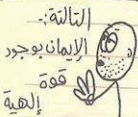 الثالثة:-
الإيمان بوجود
قوة
إلهية